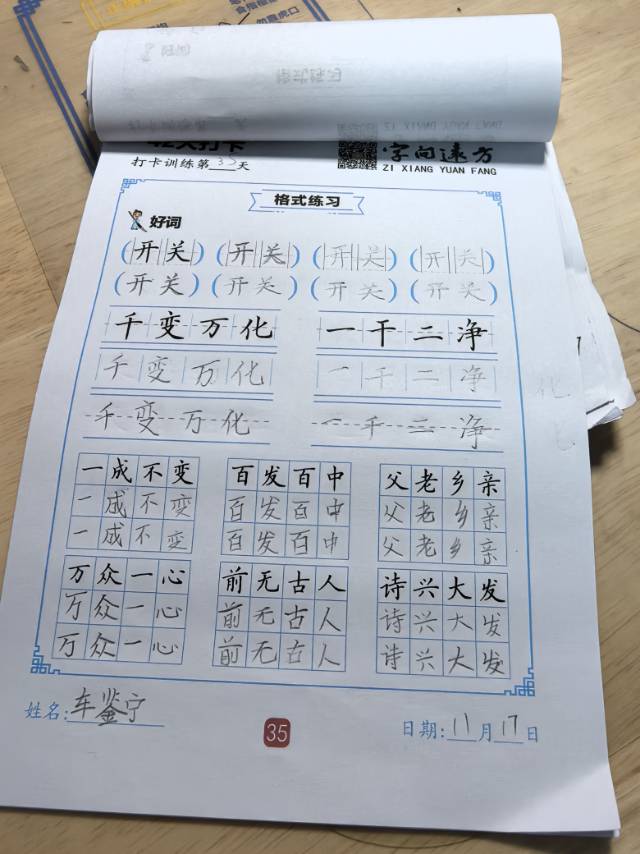 42天打卡
打卡训练第32天
字向远方
ZI XIANG YUAN FANG
格式练习
好词
(开关) (开关) (开关) (开关)
(开关) (开关) (开关) (开关)
千变万化 一干二净
千变万化 一干二净
千变万化 一干二净
一成不变 百发百中 父老乡亲
一成不变 百发百中 父老乡亲
一成不变 百发百中 父老乡亲
万众一心 前无古人 诗兴大发
万众一心 前无古人 诗兴大发
万众一心 前无古人 诗兴大发
姓名:车鉴宁
35
日期:11月17日